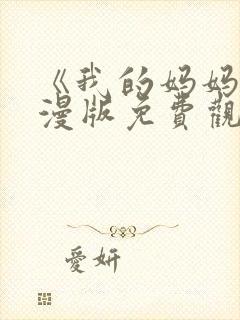 《我的妈妈
漫版免費觀
愛妍